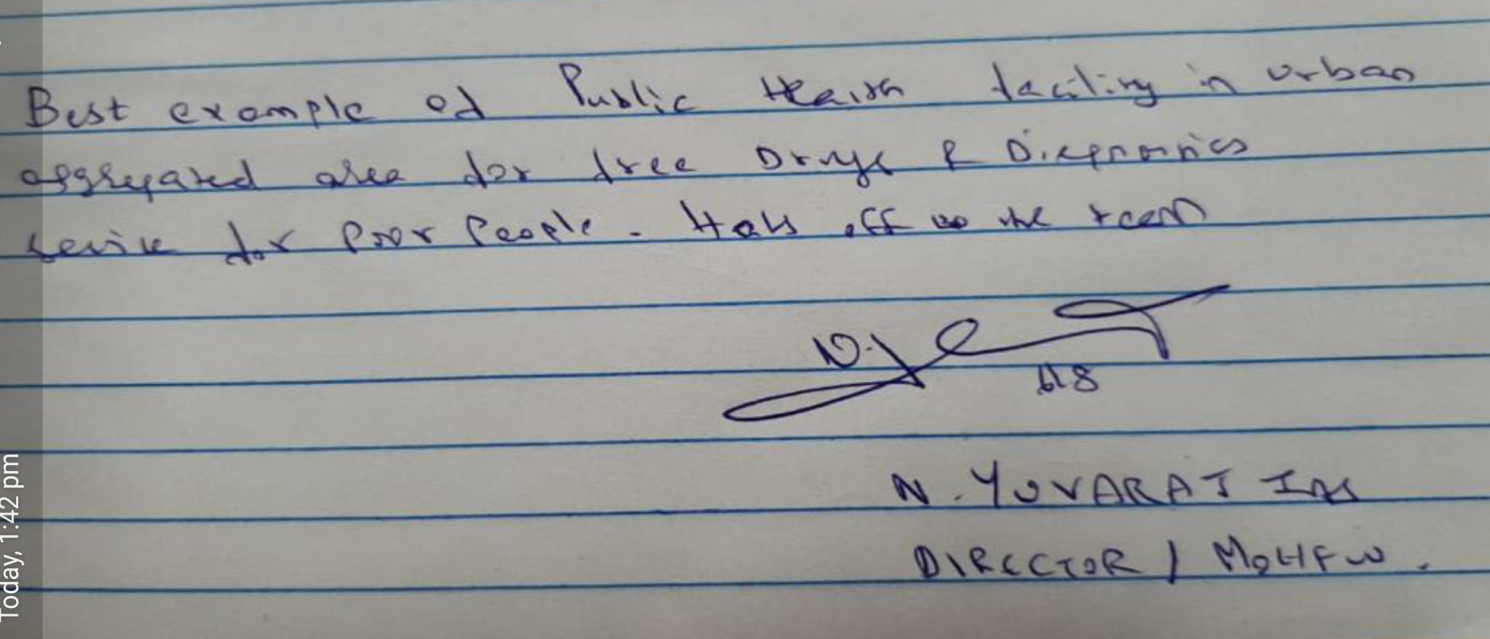 Best example of Public Health facility in urban
aggregated area for free Drugs & Diagnostics
service for Poor People. Hats off to the team
N.Y
N. YUVARAJ IAS
DIRECTOR / MOHFW.
Today, 1:42 pm